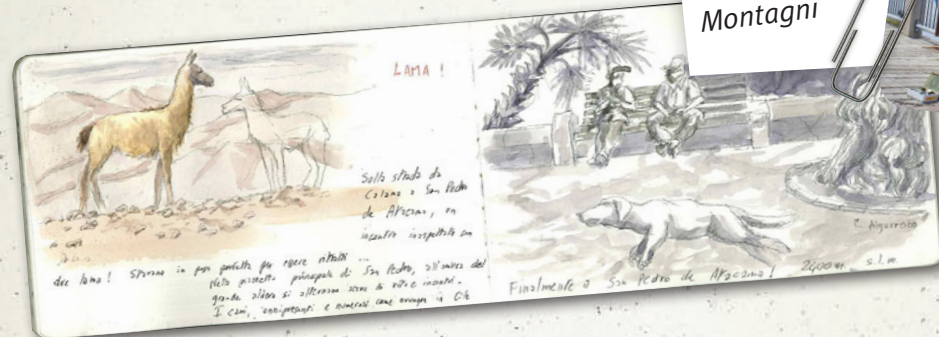 Montagni
LAMA !
Sulla strada da
Calama a San Pedro
de Atacama, un
incontro inaspettato con
due lama! Stavano in posa perfetta per essere ritratti ...
Nella piazzetta principale di San Pedro, all'ombra del
grande albero si alternano scene di vita e incontri.
I cani, onnipresenti e numerosi come ovunque in Cile
Finalmente a San Pedro de Atacama! 2400 m. s.l.m.
Algarrobo